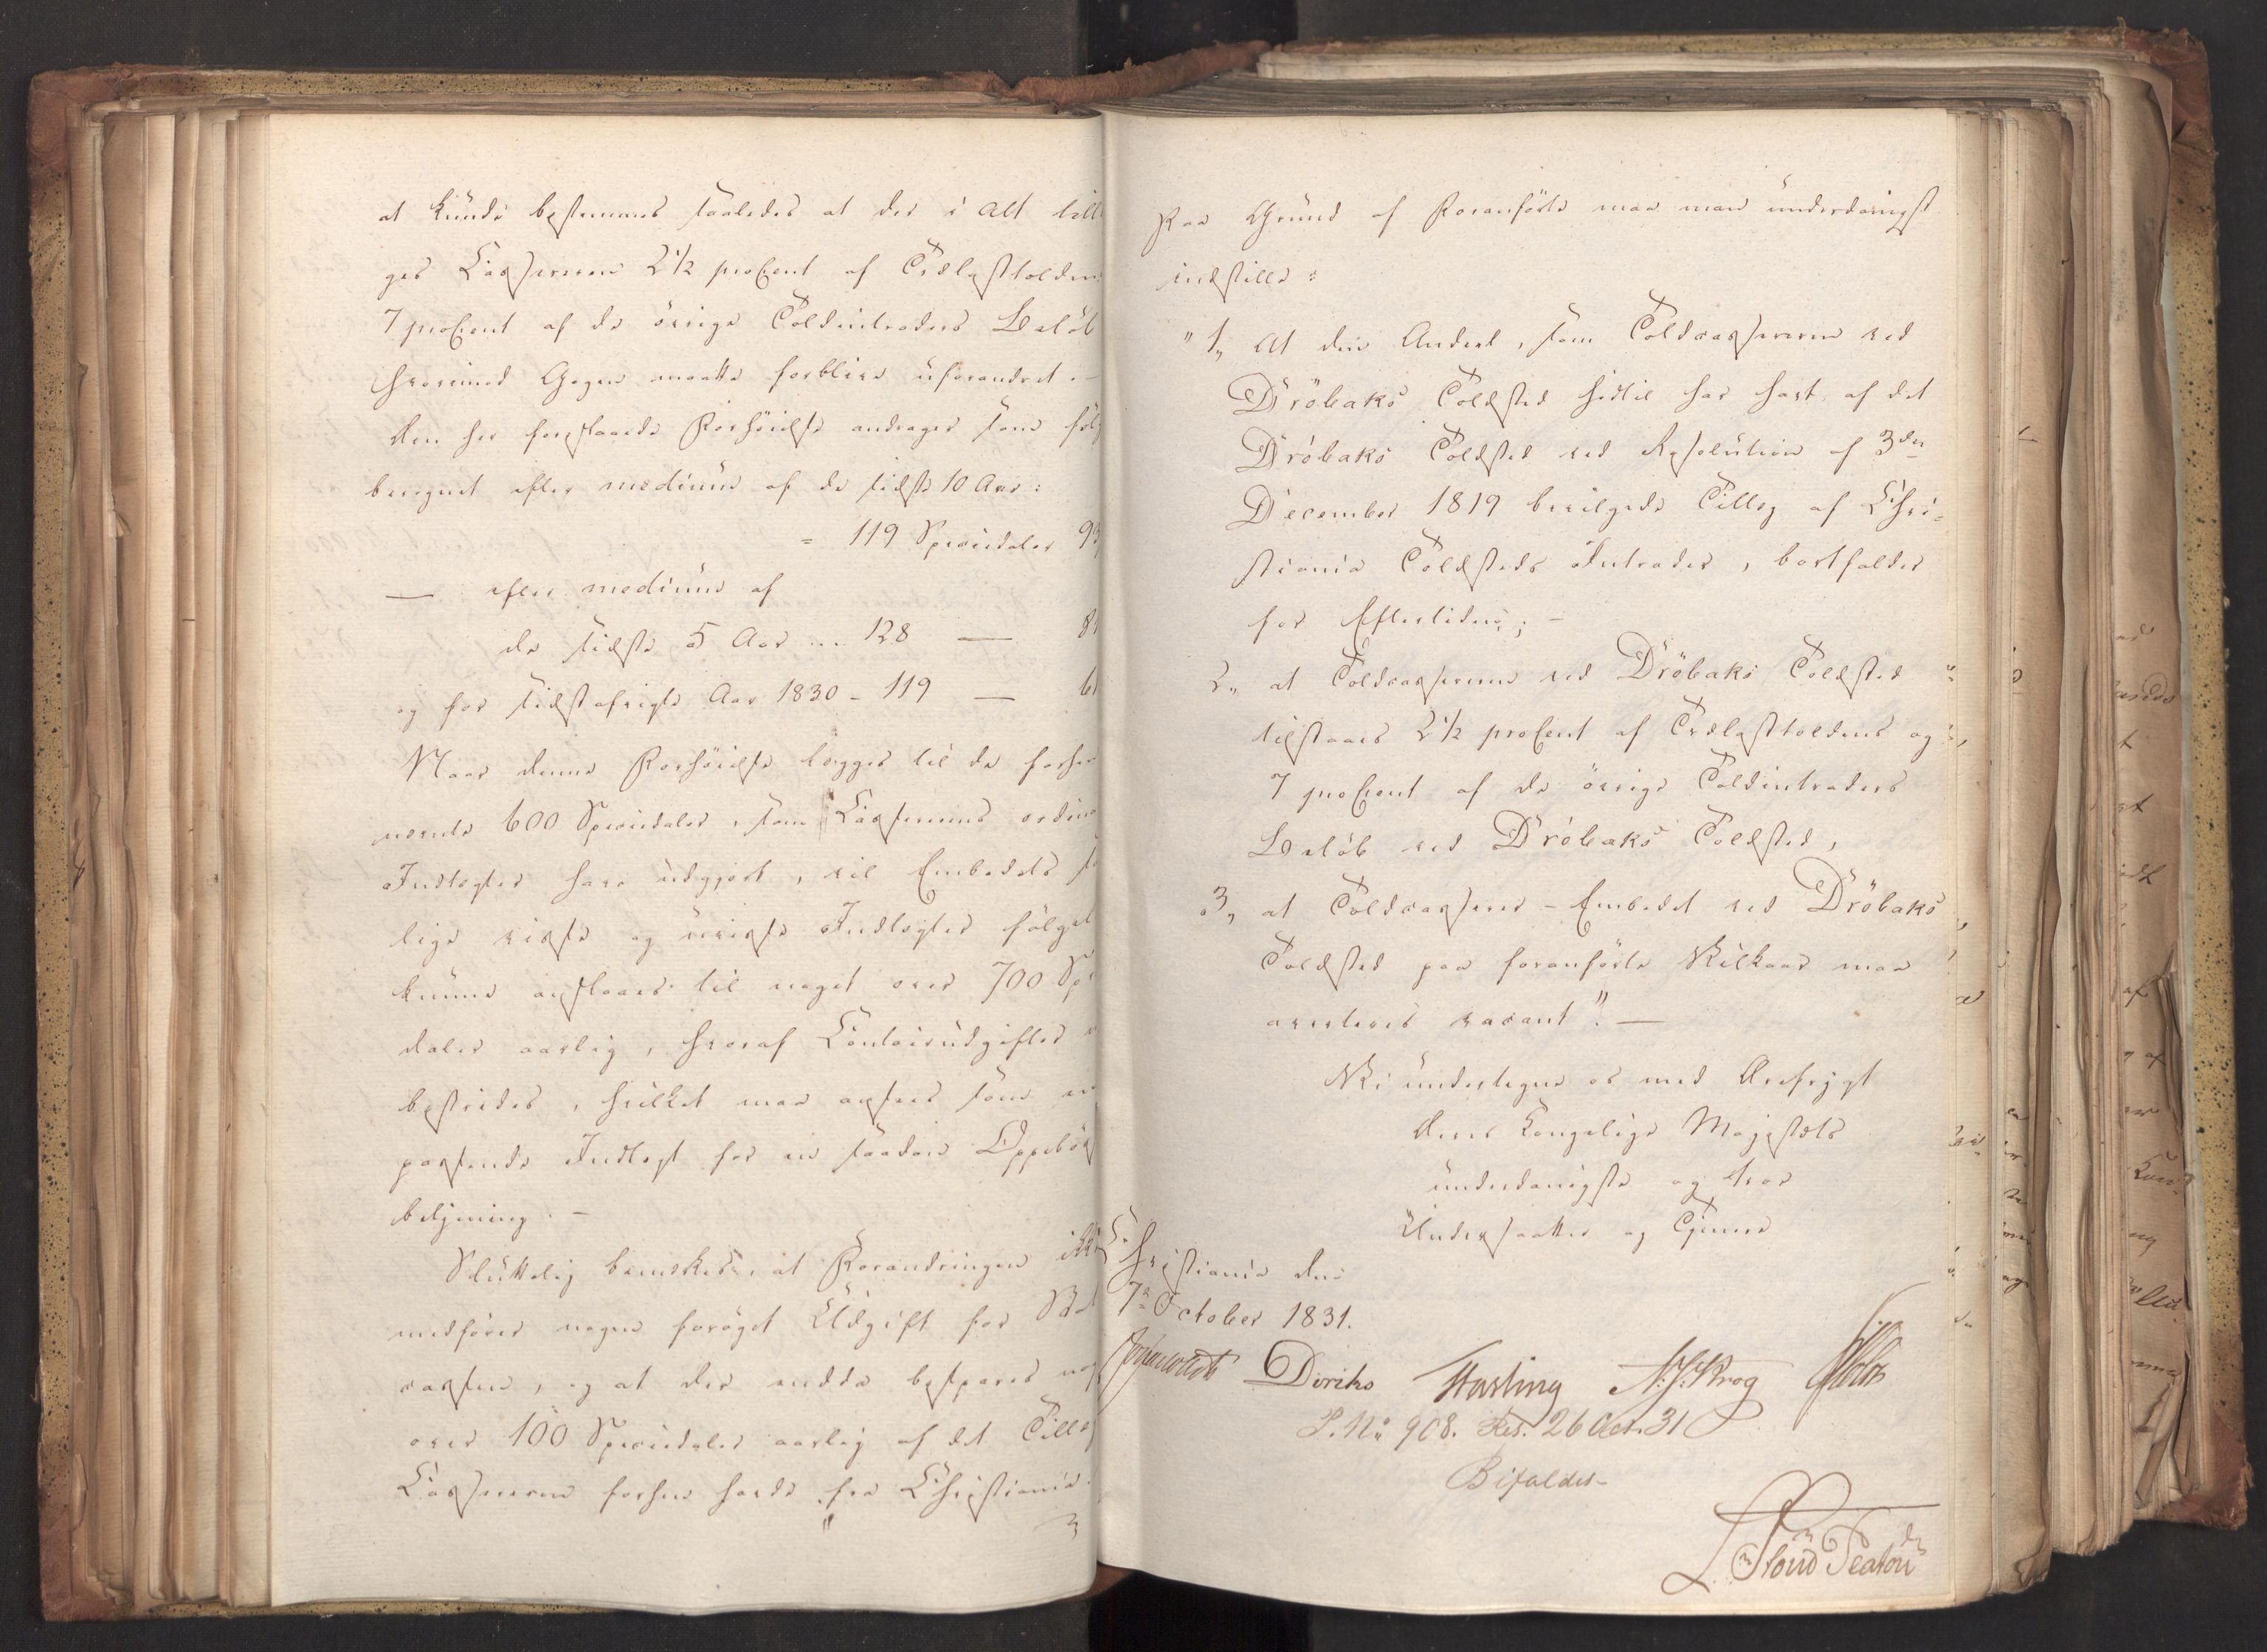 at kunde bestemmes saaledes at der i Alt till
ges Casserern 2 1/2 proCent af Trælasttolden
7 proCent af de övrige Toldintraders Belöb
hvorimod Gagen maatte forblive uforandret.-
Den her foreslaaede Forhöielse andrager som föl
beregnet efter medium af de sidste 10 Aar:
= 119 Speciedaler 93
— efter medium af
de sidste 5 Aar ... 128 — 81
og for sidstafvigte Aar 1830 - 119 — 61
Naar denne Forhöielse lægges til de forhen
nevnte 600 Speciedaler, som Casserens ordinai
Indtægter have udgjort, vil Embedets sa
lige visse og uvisse Indtægter fölgel
kunne ansslaaes til noget over 700 Spe
daler aarlig, hvoraf Contoirudgifter
bestrides, hvilket maa ansees som en
passende Indtægt for en saadan Oppebörs
betjening.-
Sluttelig bemærkes, at Forandringen ikke
medförer nogen foröget Udgift for Stat
cassen, og at der endda bespares nog
over 100 Speciedaler aarlig af det Tillæg
Casserern forhen havde fra Christiania.
3
Paa Grund af Foranförte maa man underdanigst
indstille:
"1, At den Andeel, som Toldcassereren ved
Dröbaks Toldsted hidtil har havt af det
Dröbaks Toldsted ved Resolution af 3die
December 1819 bevilgede Tillæg af Chri-
stiania Toldsteds Intrader, bortfalder
for Eftertiden; -
2, at Toldcassereren ved Dröbaks Toldsted
tilstaaes 2 1/2 proCent af Trælasttoldens og
7 proCent af de övrige Toldintraders
Belöb ved Dröbaks Toldsted,
3, at Toldcasserer-Embedet ved Dröbaks
Toldsted paa foranförte Vilkaar maa
averteres vacant". —
Vi undertegne os med Ærefrygt
Deres Kongelige Majestæts
underdanigste og troe
Undersaatter og Tjenere
Christiania den
7de October 1831.
Diriks N.J. Krog
P. No 908. Res. 26 Oct. 31
Bifaldes